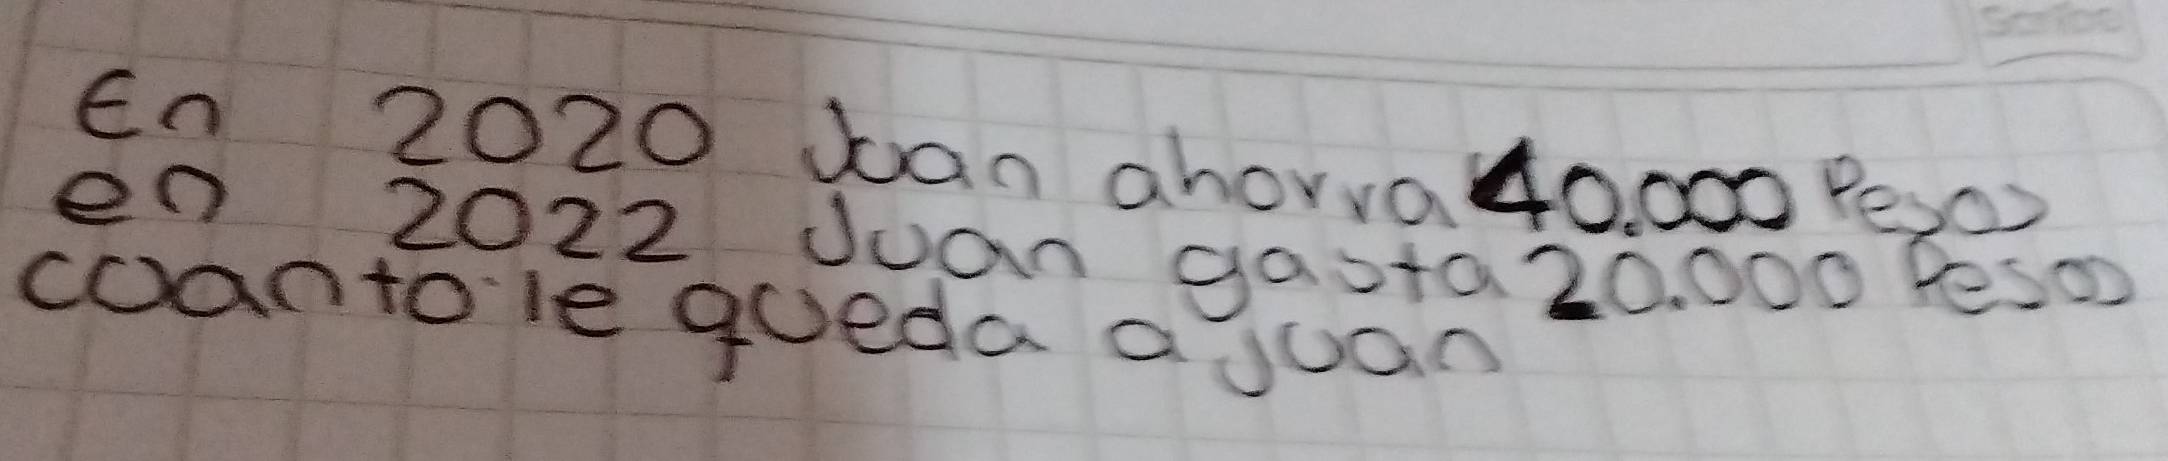 En 2020 Juan ahorra 40.000 Pesos
en 2022 Juan gasta 20.000 Pesos
cuanto le queda a juan